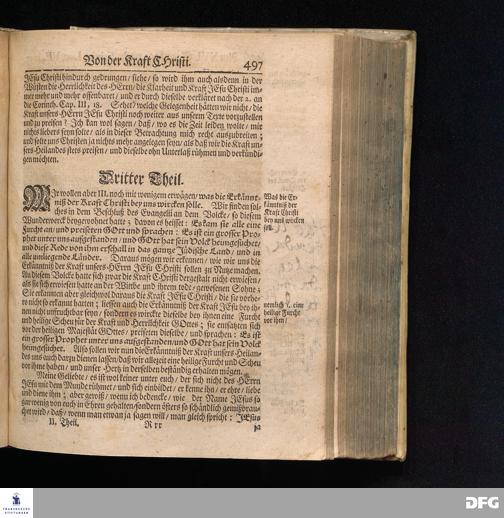 Von der Kraft Christi. 497
JEsu Christi hindurch gedrungen / siehe / so wird ihm auch alsdenn in der
Wüsten die Herrlichkeit des HErrn / die Klarheit und Kraft JEsu Christi im-
mer mehr und mehr offenbaret / und er durch dieselbe verkläret nach der 2. an
die Corinth. Cap. III, 18. Sehet / welche Gelegenheit hätten wir nicht / die
Kraft unsers HErrn JEsu Christi noch weiter aus unserm Texte vorzustellen
und zu preisen? Ich kan wol sagen / daß / wo es die Zeit leiden wolte / mir
nichts liebers seyn solte / als in dieser Betrachtung mich recht auszubreiten;
und solte uns Christen ja nichts mehr angelegen seyn / als daß wir die Kraft un-
sers Heilandes stets preisen / und dieselbe ohn Unterlaß rühmen und verkündi-
gen möchten.
Dritter Theil.
WIr wollen aber III. noch mit wenigem erwägen / was die Erkännt-
niß der Kraft Christi bey uns wircken solle. Wir finden sol-
ches in dem Beschluß des Evangelii an dem Volcke / so diesem
Wunderwerck beygewohnet hatte; davon es heisset: Es kam sie alle eine
Furcht an / und preiseten GOtt und sprachen: Es ist ein grosser Pro-
phet unter uns aufgestanden / und GOtt hat sein Volck heimgesuchet /
und diese Rede von ihm erschall in das gantze Jüdische Land / und in
alle umliegende Länder. Daraus mögen wir erkennen / wie wir uns die
Erkänntniß der Kraft unsers HErrn JEsu Christi sollen zu Nutze machen.
An diesem Volcke hatte sich zwar die Kraft Christi dergestalt nicht erwiesen /
als sie sich erwiesen hatte an der Witbe und ihrem todt-gewesenen Sohne;
Sie erkannten aber gleichwol daraus die Kraft JEsu Christi / die sie vorhe-
ro nicht so erkannt hatten; liessen auch die Erkänntniß der Kraft JEsu bey ih-
nen nicht unfruchtbar seyn / sondern es wirckte dieselbe bey ihnen eine Furcht
und heilige Scheu für der Kraft und Herrlichkeit GOttes; sie entsatzten sich
vor der heiligen Majestät GOttes / preiseten dieselbe / und sprachen: Es ist
ein grosser Prophet unter uns aufgestanden / und GOtt hat sein Volck
heimgesuchet. Also sollen wir nun die Erkänntniß der Kraft unsers Heilan-
des uns auch darzu dienen lassen / daß wir allezeit eine heilige Furcht und Scheu
vor ihme haben / und unser Hertz in derselben beständig erhalten mögen.
Meine Geliebte / es ist wol keiner unter euch / der sich nicht des HErrn
JEsu mit dem Munde rühmet / und sich einbildet / er kenne ihn / er ehre / liebe
und diene ihm; aber gewiß / wenn ich bedencke / wie der Name JEsus so
gar wenig von euch in Ehren gehalten / sondern öfters so schändlich gemißbrau-
chet wird / daß / wenn man etwan ja sagen will / man gleich spricht: JEsus
II. Theil. Rrr ja
Was die Er-
känntniß der
Kraft Christi
bey uns wircken
soll.
nemlich 1. eine
heilige Furcht
vor ihm /
FRANCKESCHE
STIFTUNGEN
DFG